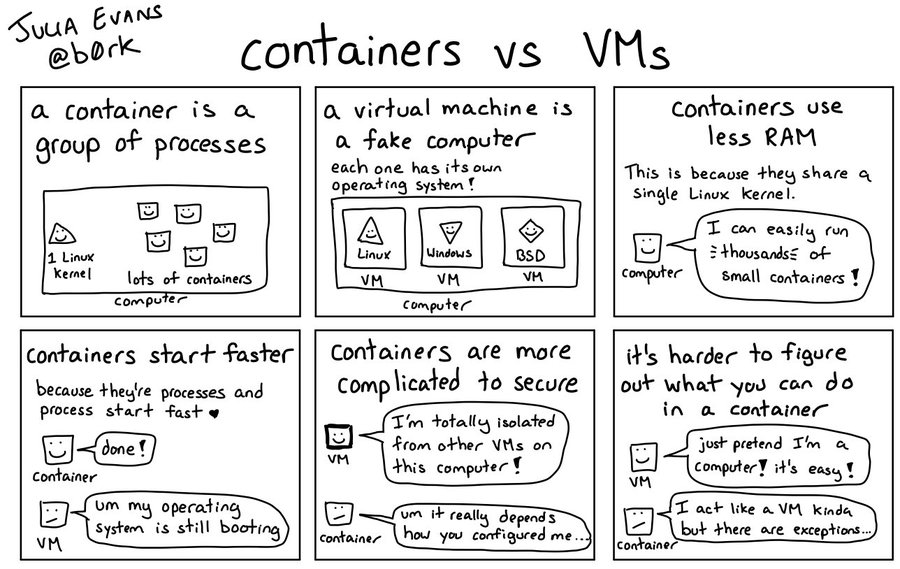 JULIA EVANS
@b0rk
containers vs VMs
a container is a
group of processes
1 Linux
kernel
lots of containers
computer
a virtual machine is
a fake computer
each one has its own
operating system!
Linux
Windows
BSD
VM
VM
VM
computer
containers use
less RAM
This is because they share a
single Linux kernel.
I can easily run
thousands of
small containers!
computer
containers start faster
because they're processes and
process start fast ♥
done!
container
um my operating
system is still booting
VM
containers are more
complicated to secure
I'm totally isolated
from other VMs on
this computer!
VM
um it really depends
how you configured me...
container
it's harder to figure
out what you can do
in a container
just pretend I'm a
computer! it's easy!
VM
I act like a VM kinda
but there are exceptions...
container